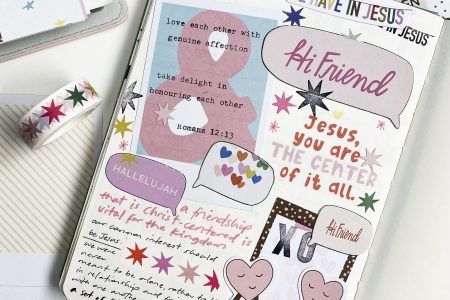 HAVE IN JESUS
love each other with
genuine affection
take delight in
honouring each other
Romans 12:13
Hi Friend
Jesus,
you are
THE CENTER
of it all.
HALLELUJAH
a friendship
that is Christ-centered is
vital for the Kingdom
our common interest should
be Jesus.
we were never
meant to be alone, rather to
in relationship
with one another
a set of
Hi Friend
XO